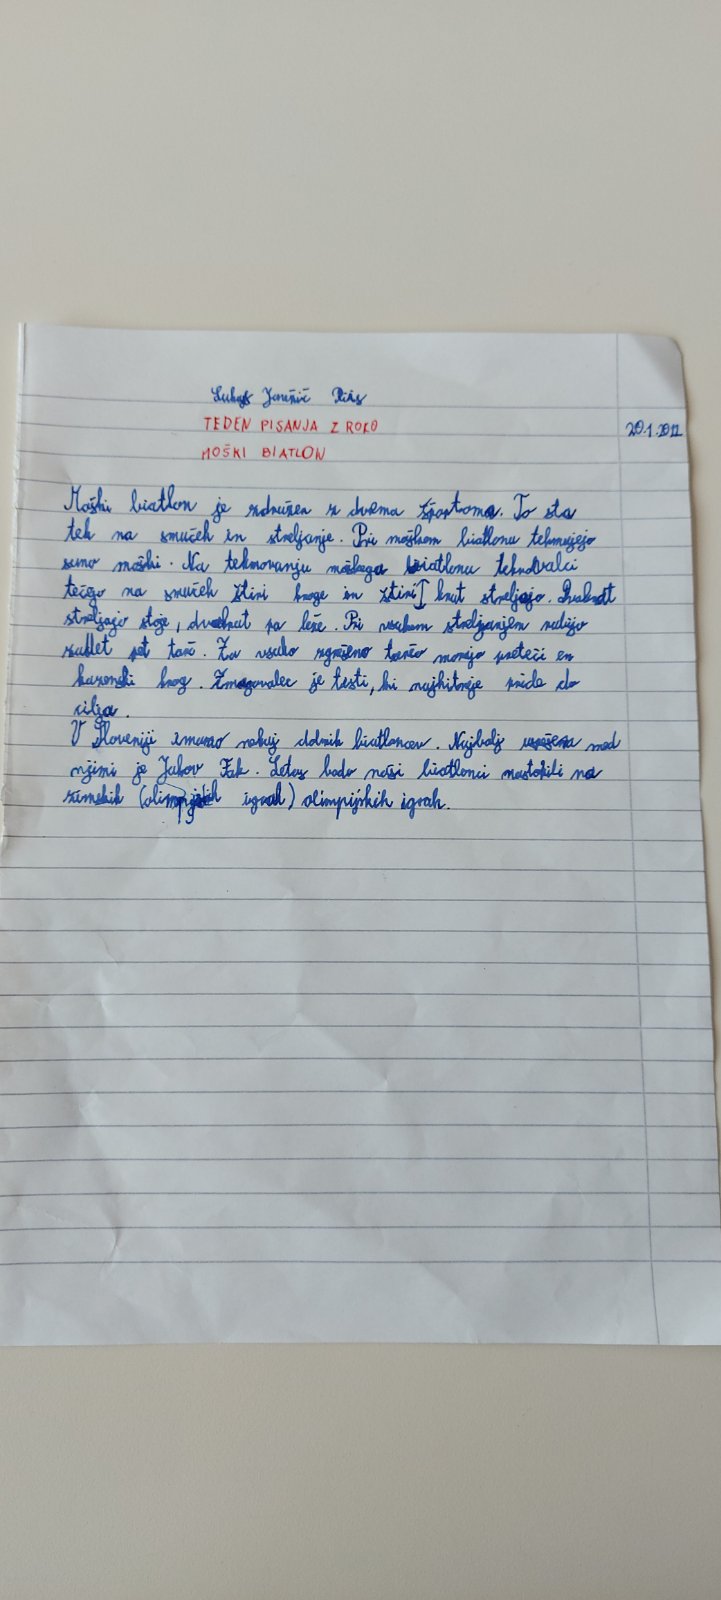 TEDEN PISANJA Z ROKO
20.1.2022
MOŠKI BIATLON
Moški biatlon je združen z dvema športoma. To sta
tek na smučeh in streljanje. Pri moškem biatlonu tekmujejo
samo moški. Na tekmovanju moškega biatlona tekmovalci
tečejo na smučeh štiri kroge in štiri krat streljajo. Dvakrat
streljajo stoje, dvakrat pa leže. Pri vsakem streljanjem
pet tarč. Za vsako zgrešeno tarčo morajo preteči en
kazenski krog. Zmagovalec je tisti, ki najhitreje pride do
cilja.
V Sloveniji imamo nekaj dobrih biatloncev. Najbolj med
njimi je Jakov Fak. Letos bodo naši biatlonci nastopili na
zimskih (olimpijskih igrah) olimpijskih igrah.